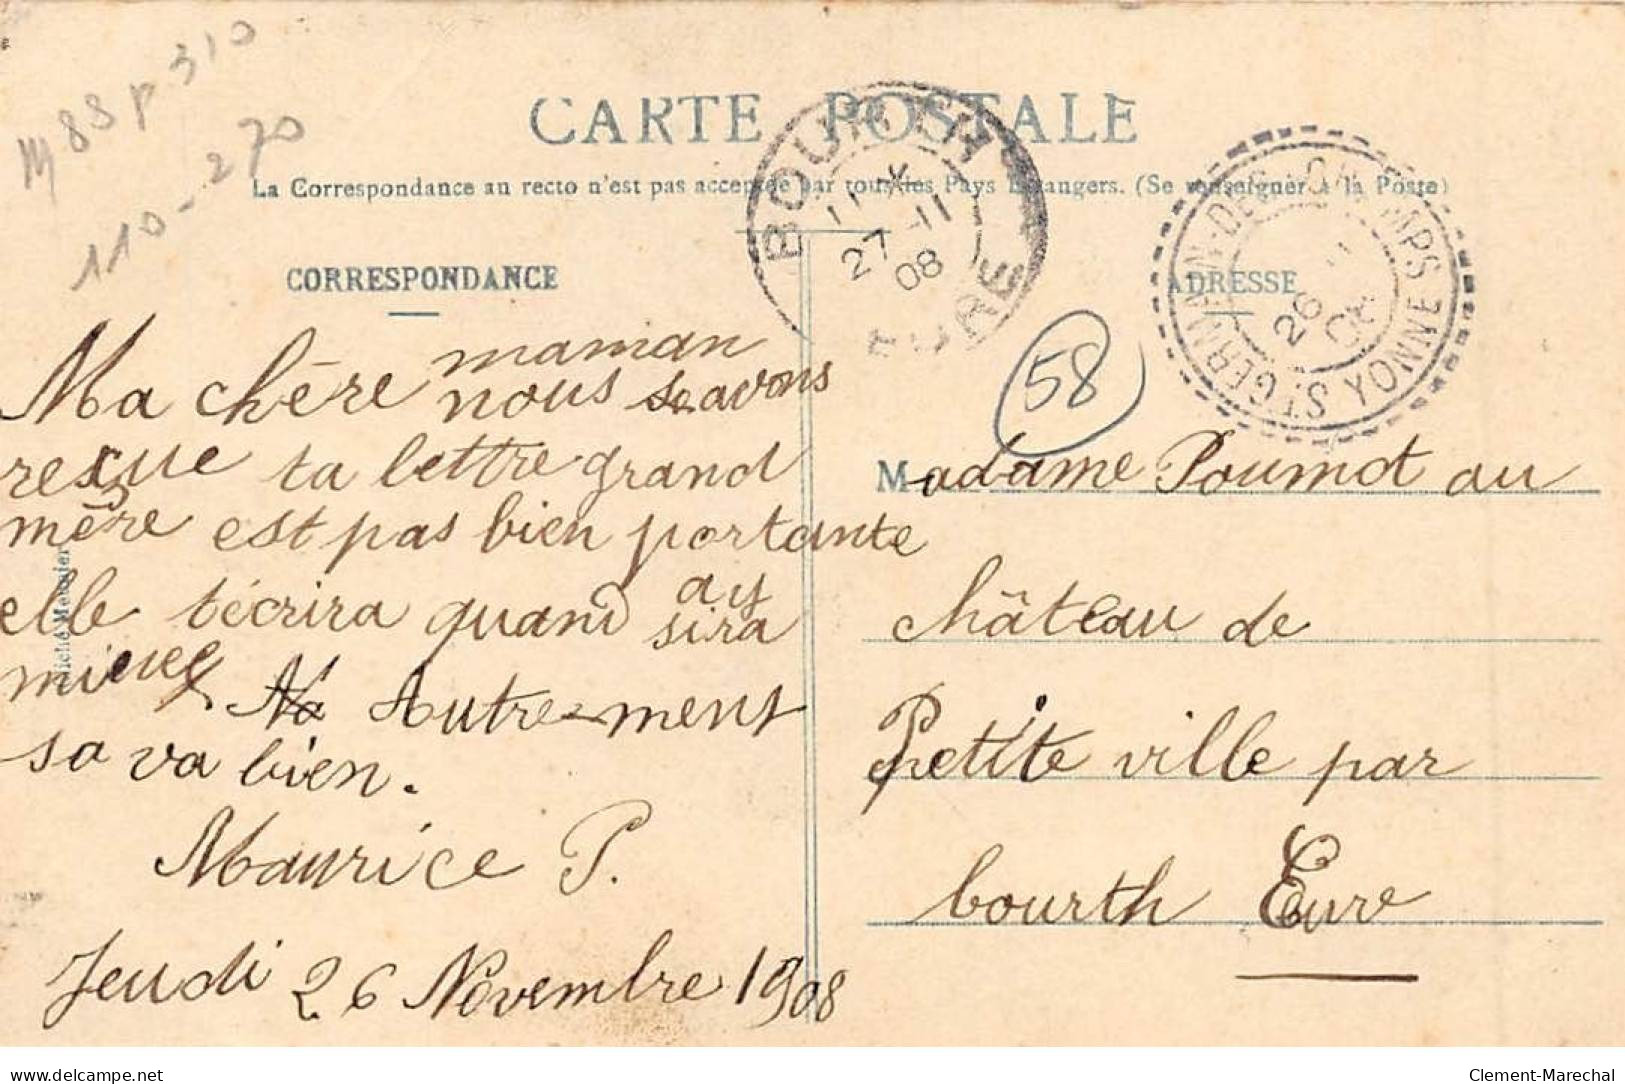 M 88 P 310
110-270
CARTE POSTALE
La Correspondance au recto n'est pas acceptée par tous les Pays Etrangers. (Se renseigner à la Poste)
BOURTH
11 *
27 -11
08
EURE
ST GERMAIN-DES-CHAMPS YONNE
26
08
CORRESPONDANCE
ADRESSE
58
Ma chère maman
nous avons
resçue ta lettre grand
mêre est pas bien portante
elle técrira quand sa sira
mieux Autre-ment
sa va bien.
Maurice P.
Jeudi 26 Novembre 1908
Madame Poumot au
château de
Petite ville par
bourth Eure
Cliché Meunier
delcampe.net
Clement-Marechal